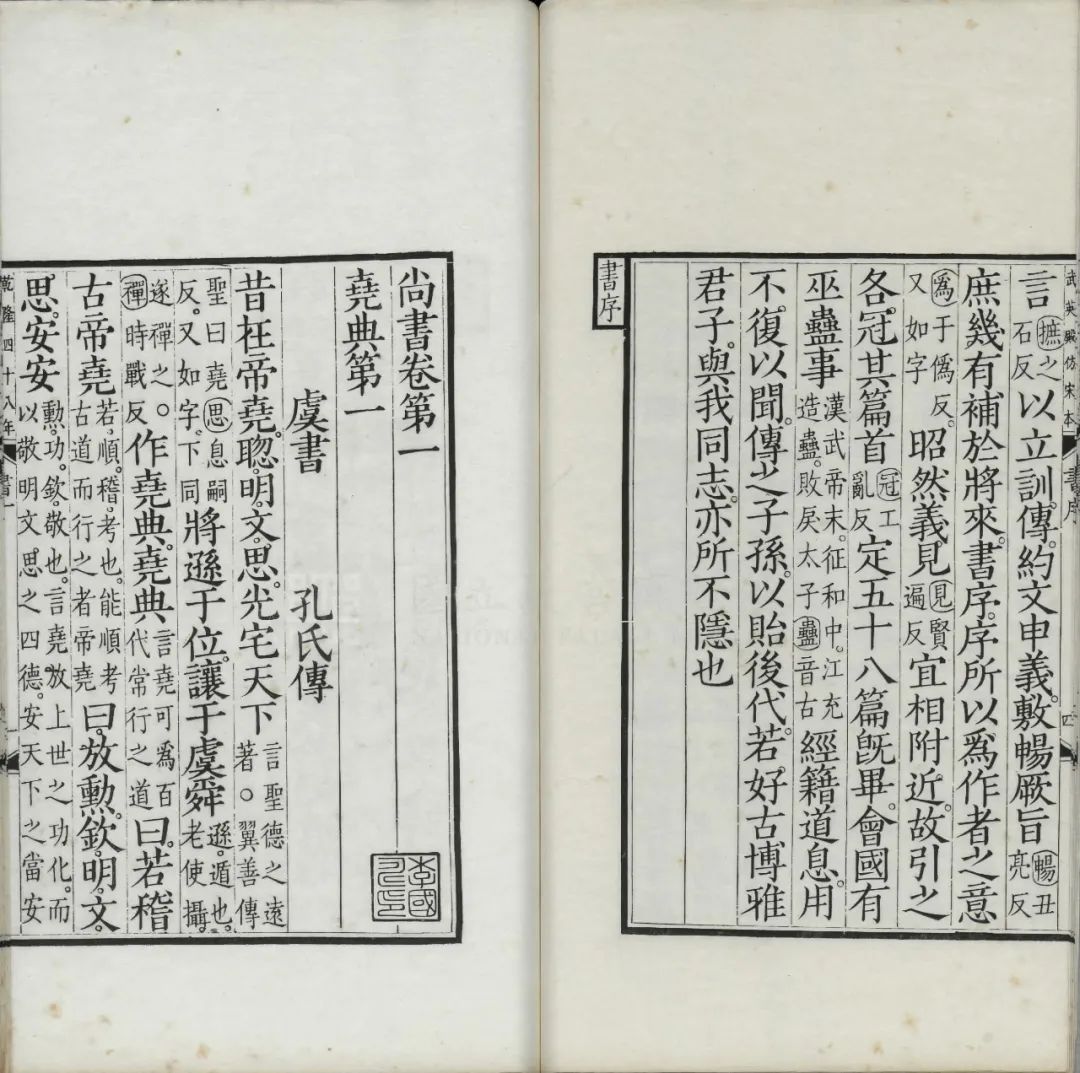 武英殿仿宋本 書序 四
言摭之石反以立訓。傳。約文申義。敷暢厥旨暢丑亮反
庶幾有補於將來。書序。序所以爲作者之意
爲于僞反。又如字昭然義見見賢遍反宜相附近。故引之
各冠其篇首冠工亂反定五十八篇旣畢。會國有
巫蠱事漢武帝末。征和中。江充造蠱。敗戾太子蠱音古經籍道息。用
不復以聞。傳之子孫。以貽後代。若好古博雅
君子。與我同志。亦所不隱也
書序
尚書卷第一
堯典第一
虞書 孔氏傳
昔在帝堯。聰。明。文。思。光宅天下言聖德之遠著○翼善傳
聖曰堯思息嗣反。又如字。下同將遜于位。讓于虞舜遜。遁也。老使攝。
遂禪之。○禪時戰反作堯典。堯典言堯可爲百代常行之道曰。若稽
古帝堯若。順。稽。考也。能順考古道而行之者帝堯曰。放勳。欽。明。文。
思。安安勳。功。欽。敬也。言堯放上世之功化。而以敬明文思之四德。安天下之當安
乾隆四十八年 書一